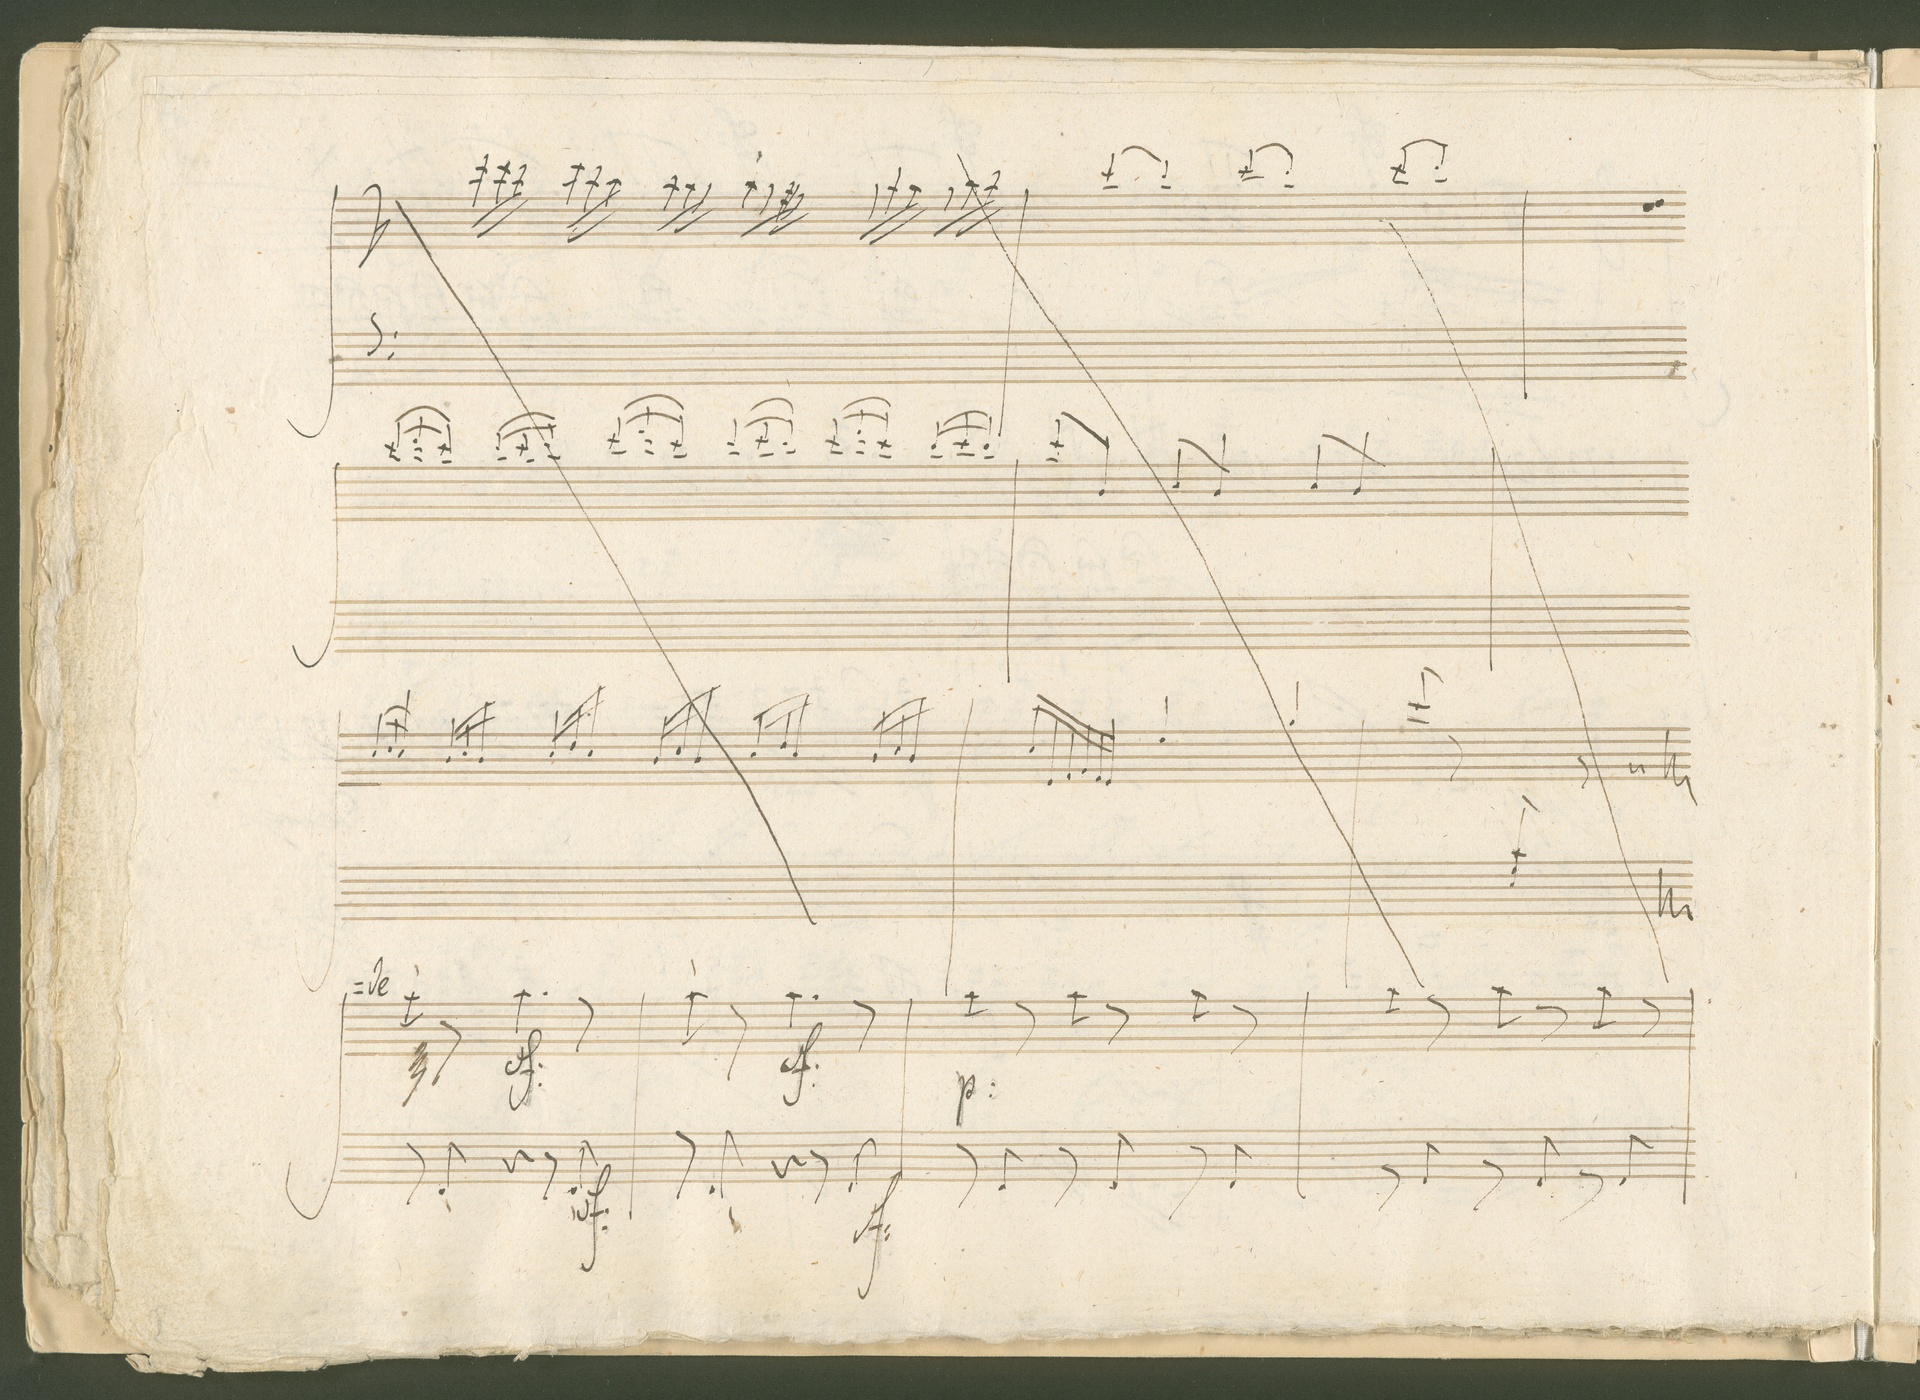 =de
sf: sf:
p:
sf: sf: